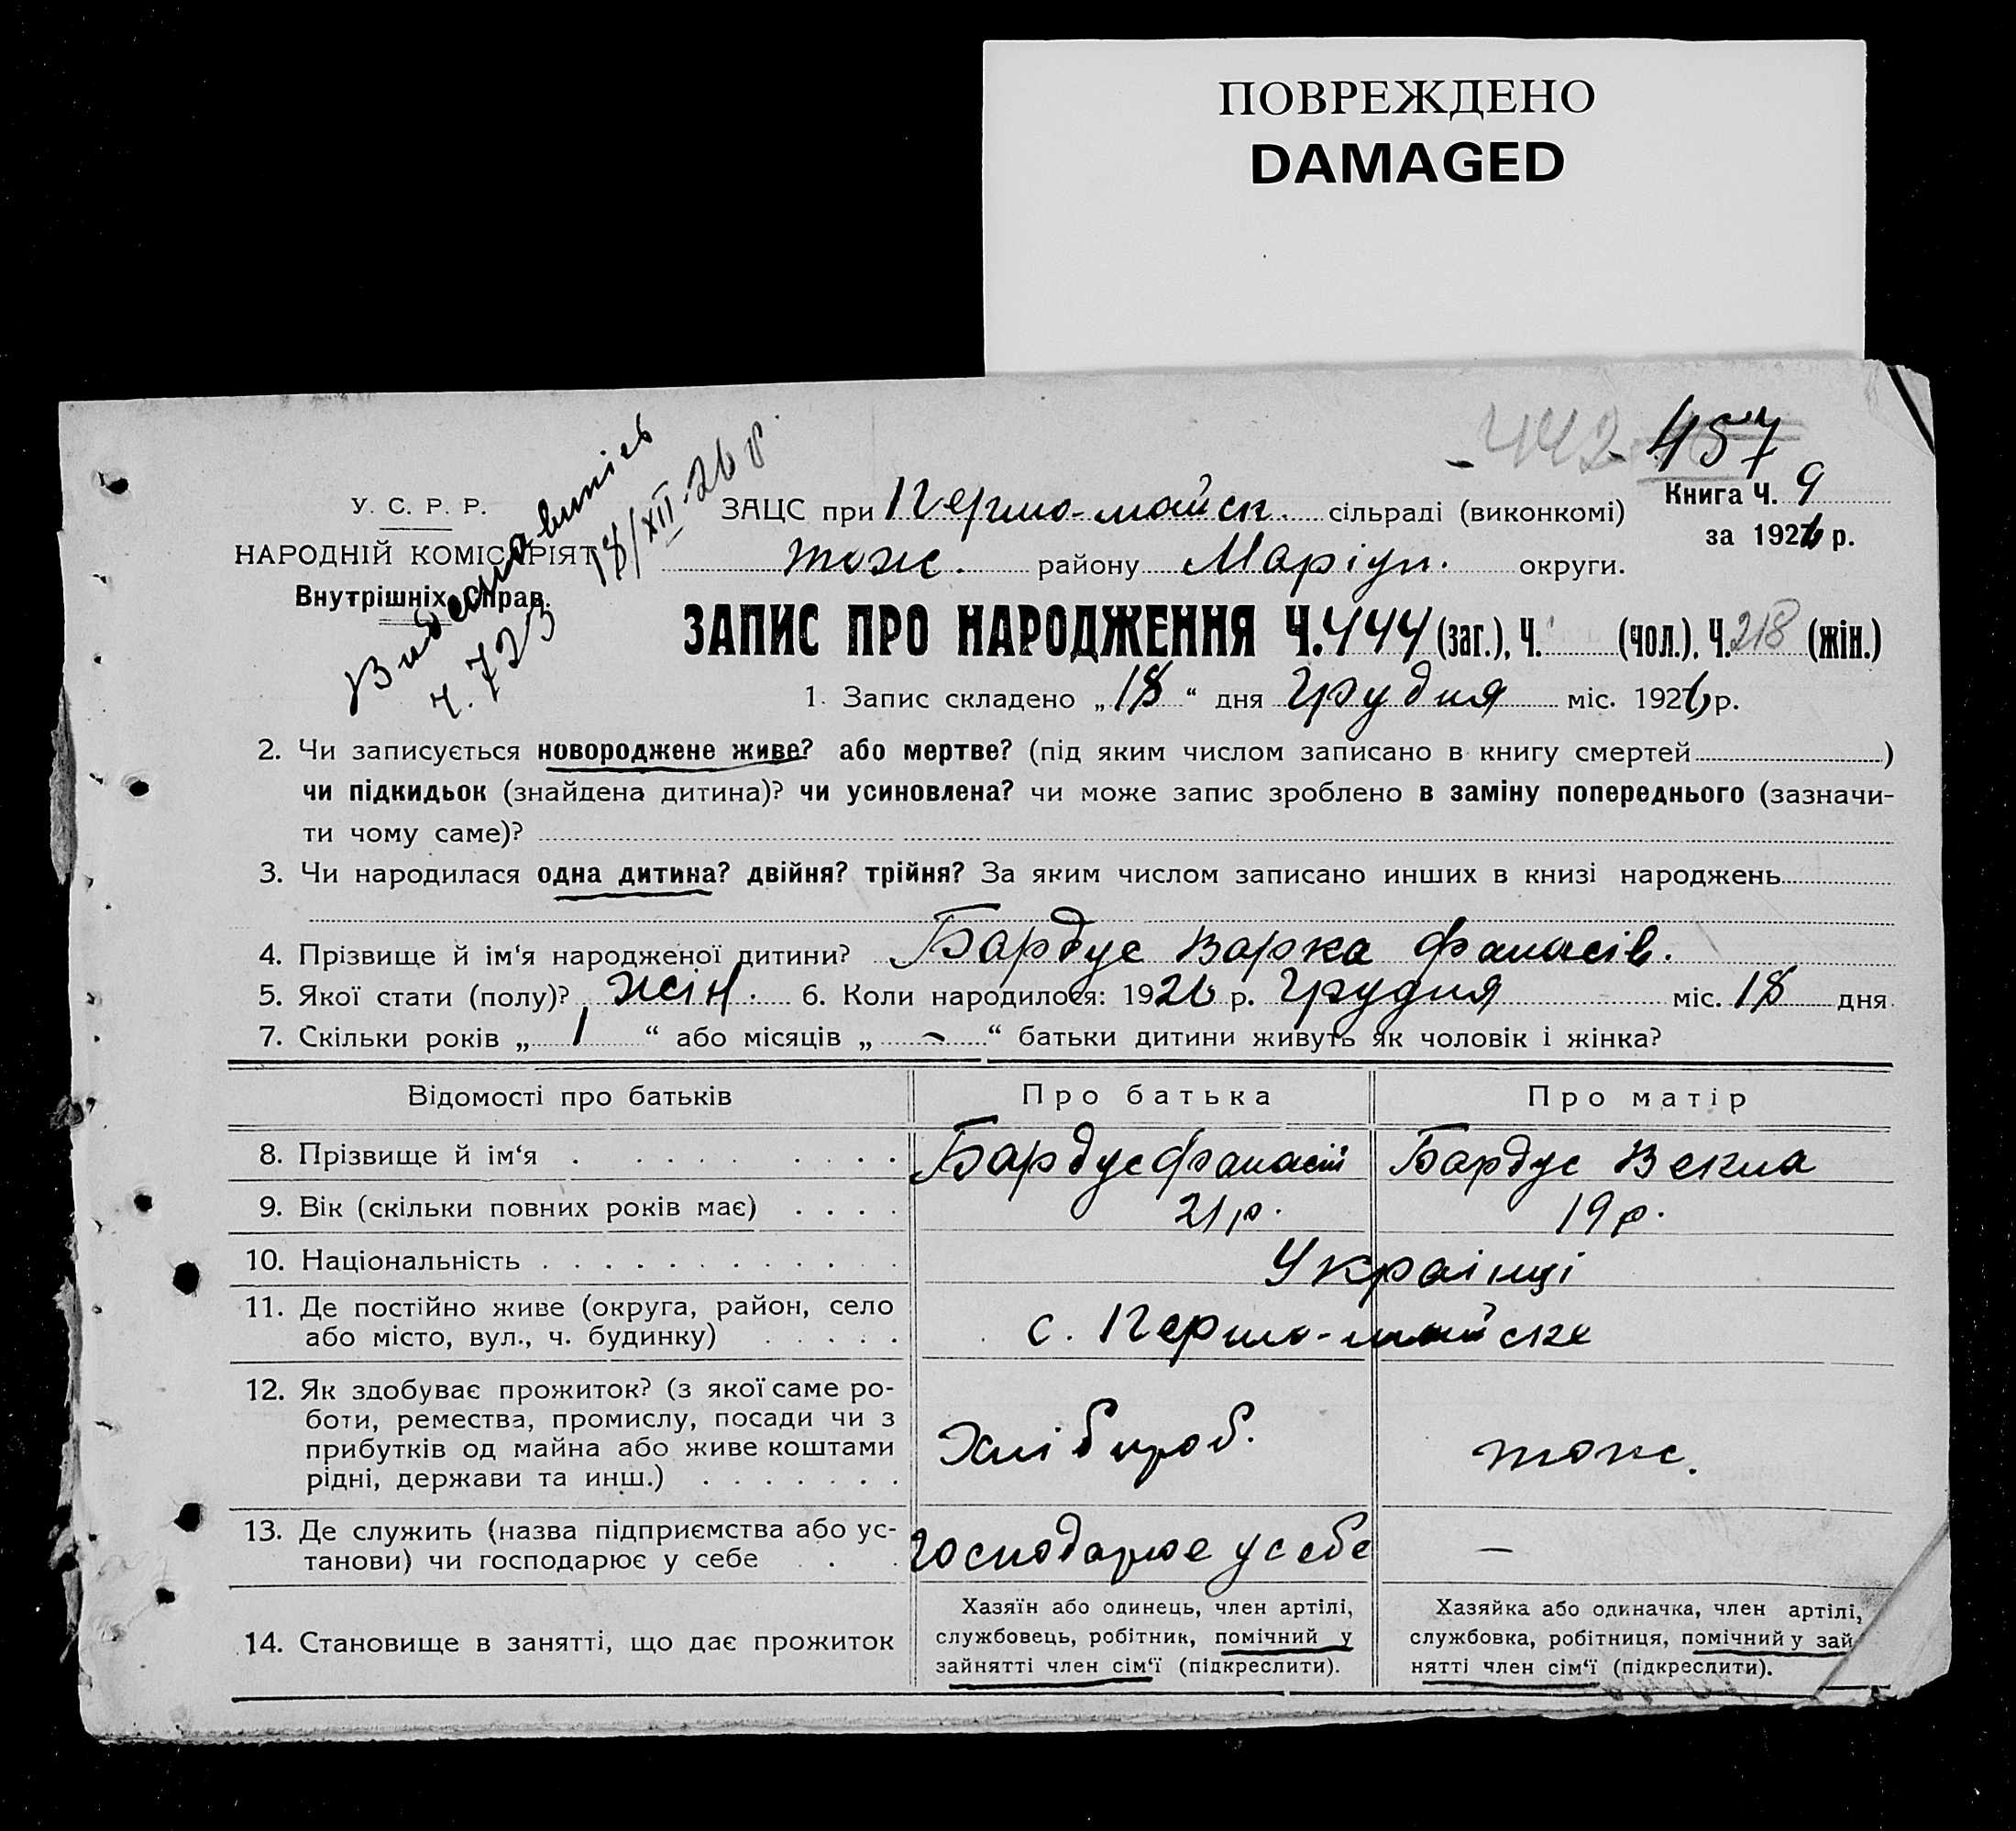 ПОВРЕЖДЕНО
DAMAGED
442 - 457
У. С. Р. Р.
НАРОДНІЙ КОМІСАРІЯТ
Внутрішніх Справ.
ч. 723
18/XII-26 р.
ЗАЦС при Першо-майск. сільраді (виконкомі)
Книга Ч. 9
за 1926 р.
тож. району Маріуп. округи.
ЗАПИС ПРО НАРОДЖЕННЯ Ч. 444 (заг.), Ч. (чол.). Ч. 218 (жін.)
1. Запис складено „18“ дня Грудня міс. 1926 р.
2. Чи записується новороджене живе? або мертве? (під яким числом записано в книгу смертей )
чи підкидьок (знайдена дитина)? чи усиновлена? чи може запис зроблено в заміну попереднього (зазначи-
ти чому саме)?
3. Чи народилася одна дитина? двійня? трійня? За яким числом записано инших в книзі народжень
4. Прізвище й ім‘я народженої дитини? Бардус Варка Фанасів.
5. Якої стати (полу)? жін. 6. Коли народилося: 1926 р. Грудня міс. 18 дня
7. Скільки років „ 1 “ або місяців „ - “ батьки дитини живуть як чоловік і жінка?
Відомості про батьків Про батька Про матір
8. Прізвище й ім‘я Бардус Фанасій Бардус Векла
9. Вік (скільки повних років має) 21 р. 19 р.
10. Національність Українці
11. Де постійно живе (округа, район, село
або місто, вул., ч. будинку) с. Першо-майске
12. Як здобуває прожиток? (з якої саме ро-
боти, ремества, промислу, посади чи з
прибутків од майна або живе коштами
рідні, держави та инш.) Хлібороб. тож.
13. Де служить (назва підприємства або ус-
танови) чи господарює у себе господарює у себе —
14. Становище в занятті, що дає прожиток
Хазяїн або одинець, член артілі,
службовець, робітник, помічний у
зайнятті член сім‘ї (підкреслити).
Хазяйка або одиначка, член артілі,
службовка, робітниця, помічний у зай
нятті член сім‘ї (підкреслити).